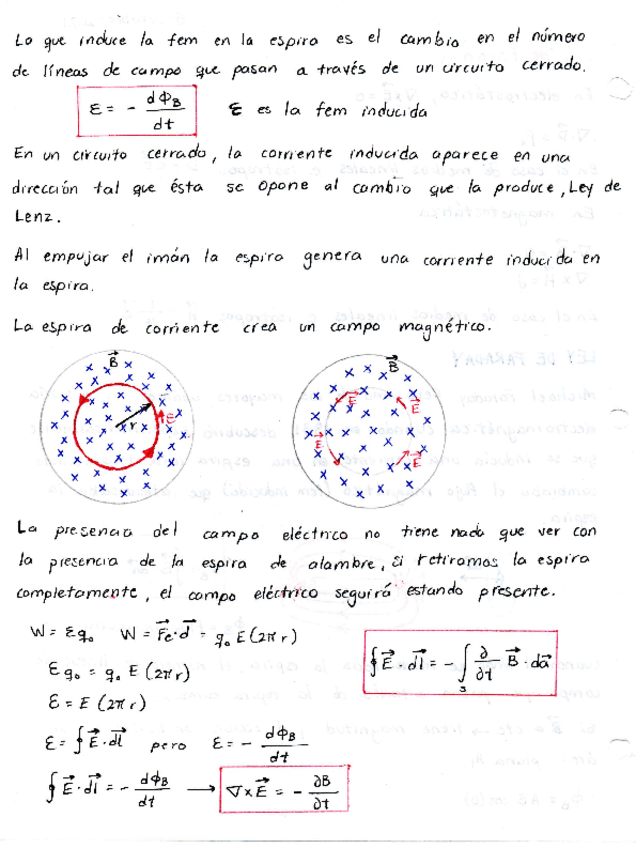 Lo que induce la fem en la espira es el cambio en el número
de líneas de campo que pasan a través de un circuito cerrado.
ε = - dΦB/dt   ε es la fem inducida
En un circuito cerrado, la corriente inducida aparece en una
dirección tal que ésta se opone al cambio que la produce, Ley de
Lenz.
Al empujar el imán la espira genera una corriente inducida en
la espira.
La espira de corriente crea un campo magnético.
B⃗   B⃗
r   E⃗   E⃗   E⃗   E⃗   E⃗   E⃗
La presencia del campo eléctrico no tiene nada que ver con
la presencia de la espira de alambre, si retiramos la espira
completamente, el campo eléctrico seguirá estando presente.
W = εq₀   W = F⃗e·d⃗ = q₀E(2πr)
εq₀ = q₀E(2πr)   ∮E⃗·dl⃗ = -∫s ∂/∂t B⃗·da⃗
ε = E(2πr)
ε = ∮E⃗·dl⃗   pero   ε = - dΦB/dt
∮E⃗·dl⃗ = - dΦB/dt → ∇×E⃗ = - ∂B/∂t